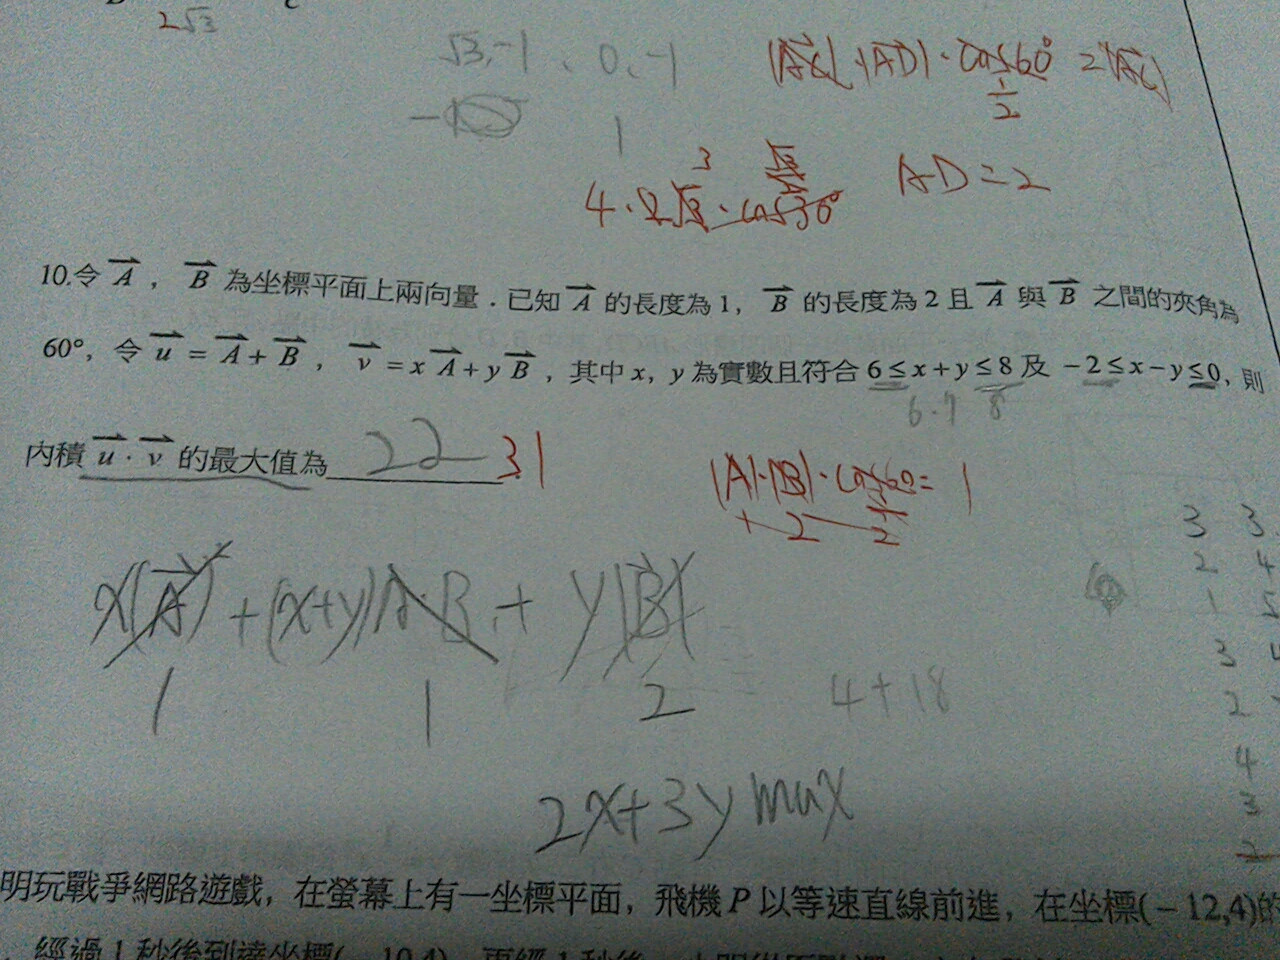 2√3
√3,-1 、 0、-1
|AC|·|AD|·cos60° = 2|AC|
1/2
1
4·2√3·cos30°
3
AD=2
10.令 A , B 為坐標平面上兩向量．已知 A 的長度為 1, B 的長度為 2 且 A 與 B 之間的夾角為
60°, 令 u = A + B , v = x A + y B , 其中 x, y 為實數且符合 6 ≤ x + y ≤ 8 及 − 2 ≤ x − y ≤ 0, 則
6.7 8
內積 u · v 的最大值為 22 31
|A|·|B|·cos60=1
2
3 3
2 4
1 5
x|A| + (x+y)A·B + y|B|
1 1 2
4+18
3
2
4
3
2
2x+3y max
明玩戰爭網路遊戲，在螢幕上有一坐標平面，飛機 P 以等速直線前進，在坐標(−12,4)的
經過 1 秒後到達坐標(−10,4)